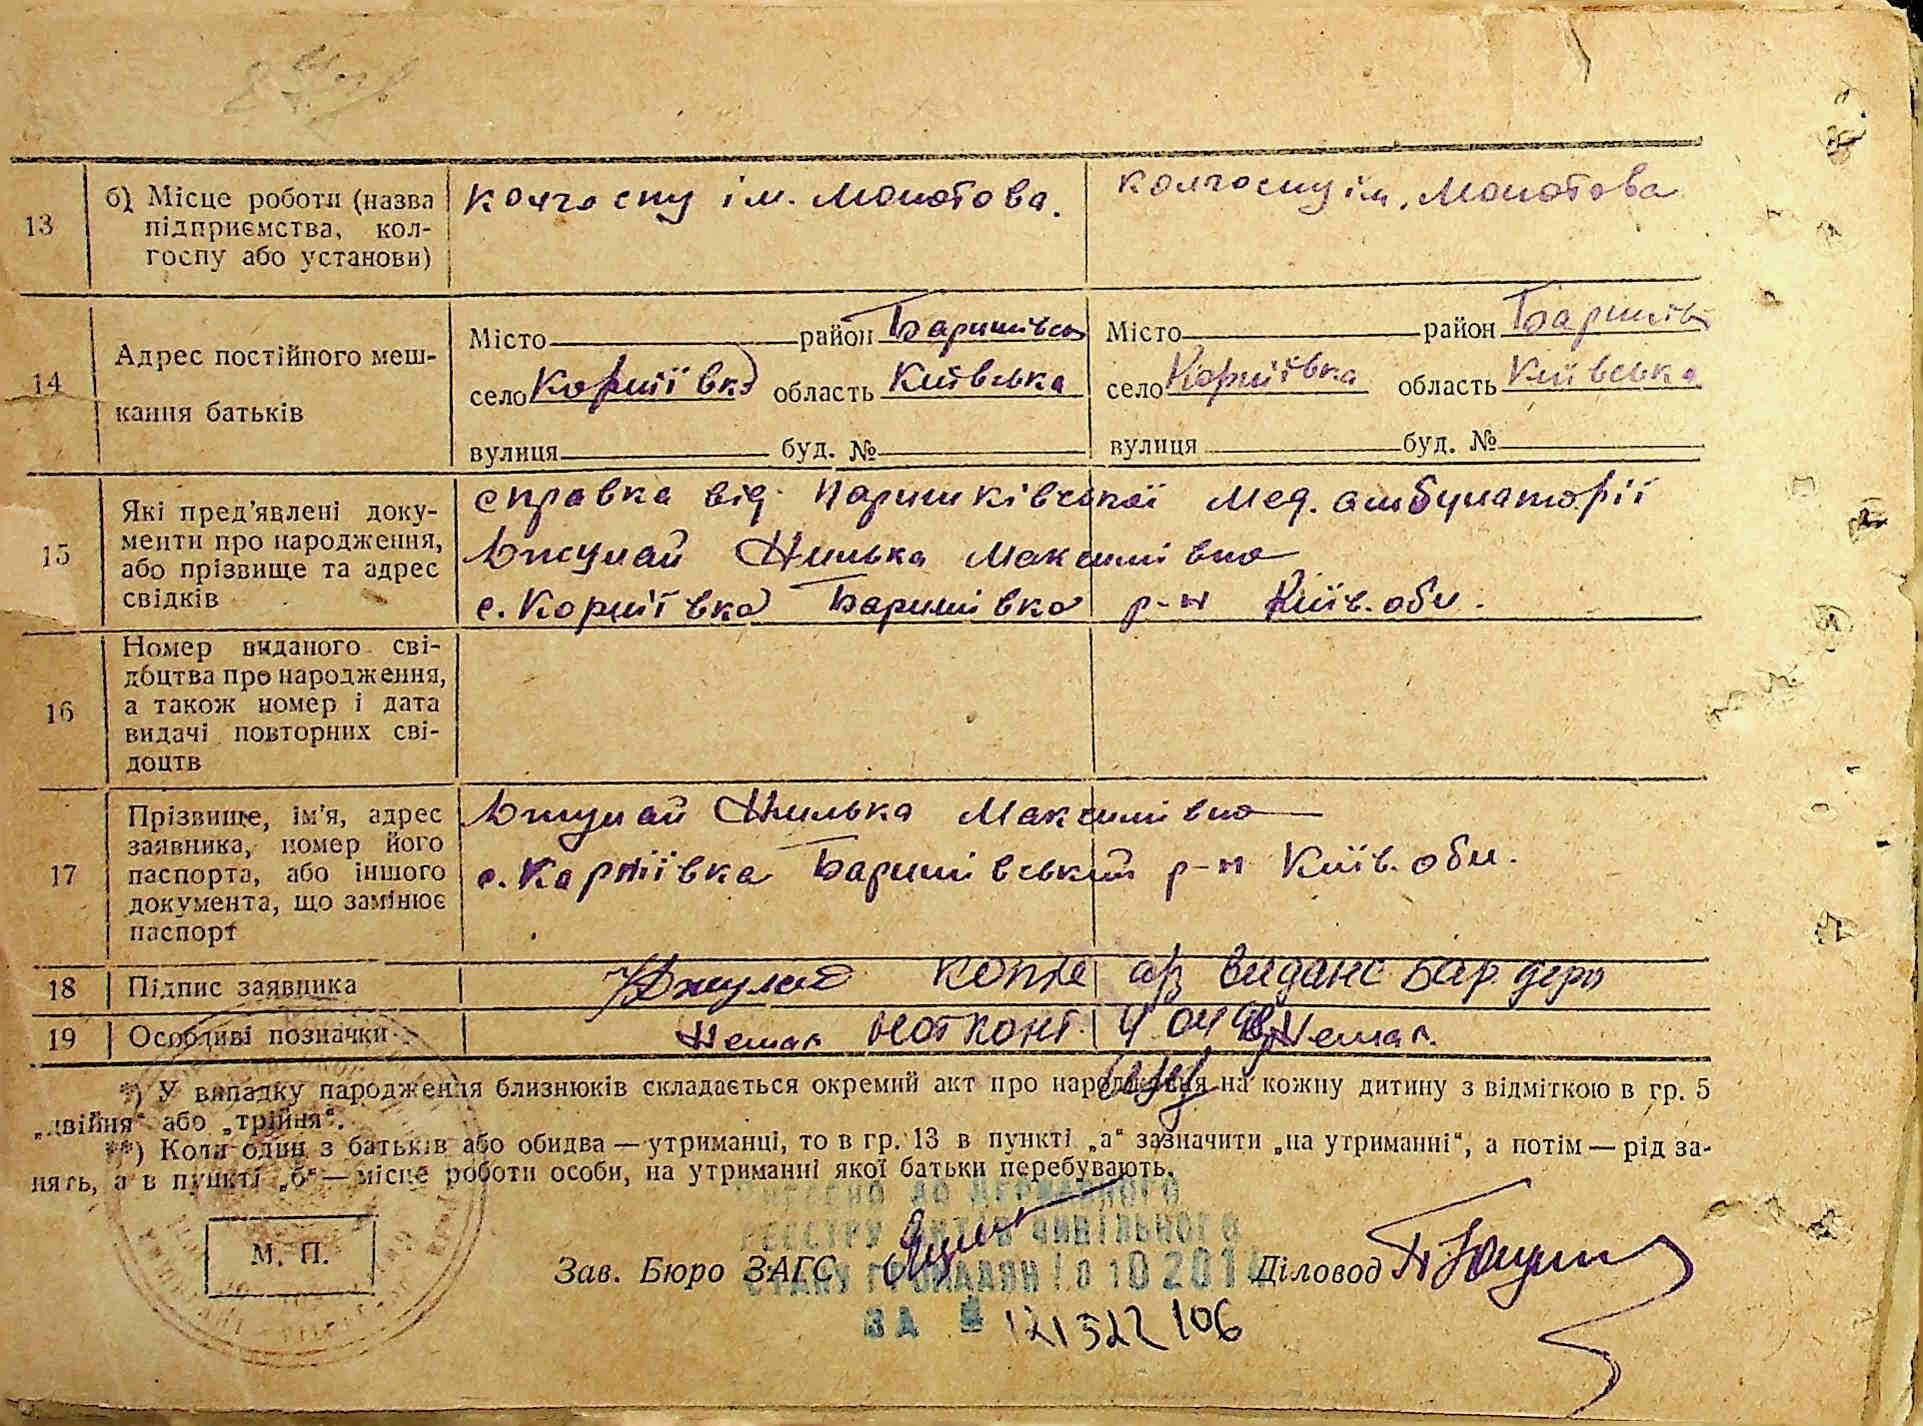 13
б) Місце роботи (назва
підприємства, кол-
госпу або установи)
колгоспу ім. Молотова.
колгоспу ім. Молотова
14
Адрес постійного меш-
кання батьків
Місто район Баришівськ
село Корніївка область Київська
вулиця буд. №
Місто район Баришів
село Корніївка область Київська
вулиця буд. №
15
Які пред'явлені доку-
менти про народження,
або прізвище та адрес
свідків
справка від Паришківської мед. амбулаторії
Джулай Килька Максимівна
с. Корніївка Баришівка р-н Київ. обл.
16
Номер виданого сві-
доцтва про народження,
а також номер і дата
видачі повторних сві-
доцтв
17
Прізвище, ім'я, адрес
заявника, номер його
паспорта, або іншого
документа, що замінює
паспорт
Джулай Килька Максимівна
с. Карніївка Баришівський р-н Київ. обл.
18
Підпис заявника
Джулай копію а/з видано Бар. держ
19
Особливі позначки
Немає нотконт. 4 04 Немає.
*) У випадку народження близнюків складається окремий акт про народження на кожну дитину з відміткою в гр. 5
„двійня“ або „трійня“.
**) Коли один з батьків або обидва — утриманці, то в гр. 13 в пункті „а“ зазначити „на утриманні“, а потім — рід за-
нять, а в пункті „б“ — місце роботи особи, на утриманні якої батьки перебувають.
ВНЕСЕНО ДО ДЕРЖАВНОГО
РЕЄСТРУ АКТІВ ЦИВІЛЬНОГО
СТАНУ ГРОМАДЯН 10 201
ЗА № 121322106
М. П.
Зав. Бюро ЗАГС
Діловод